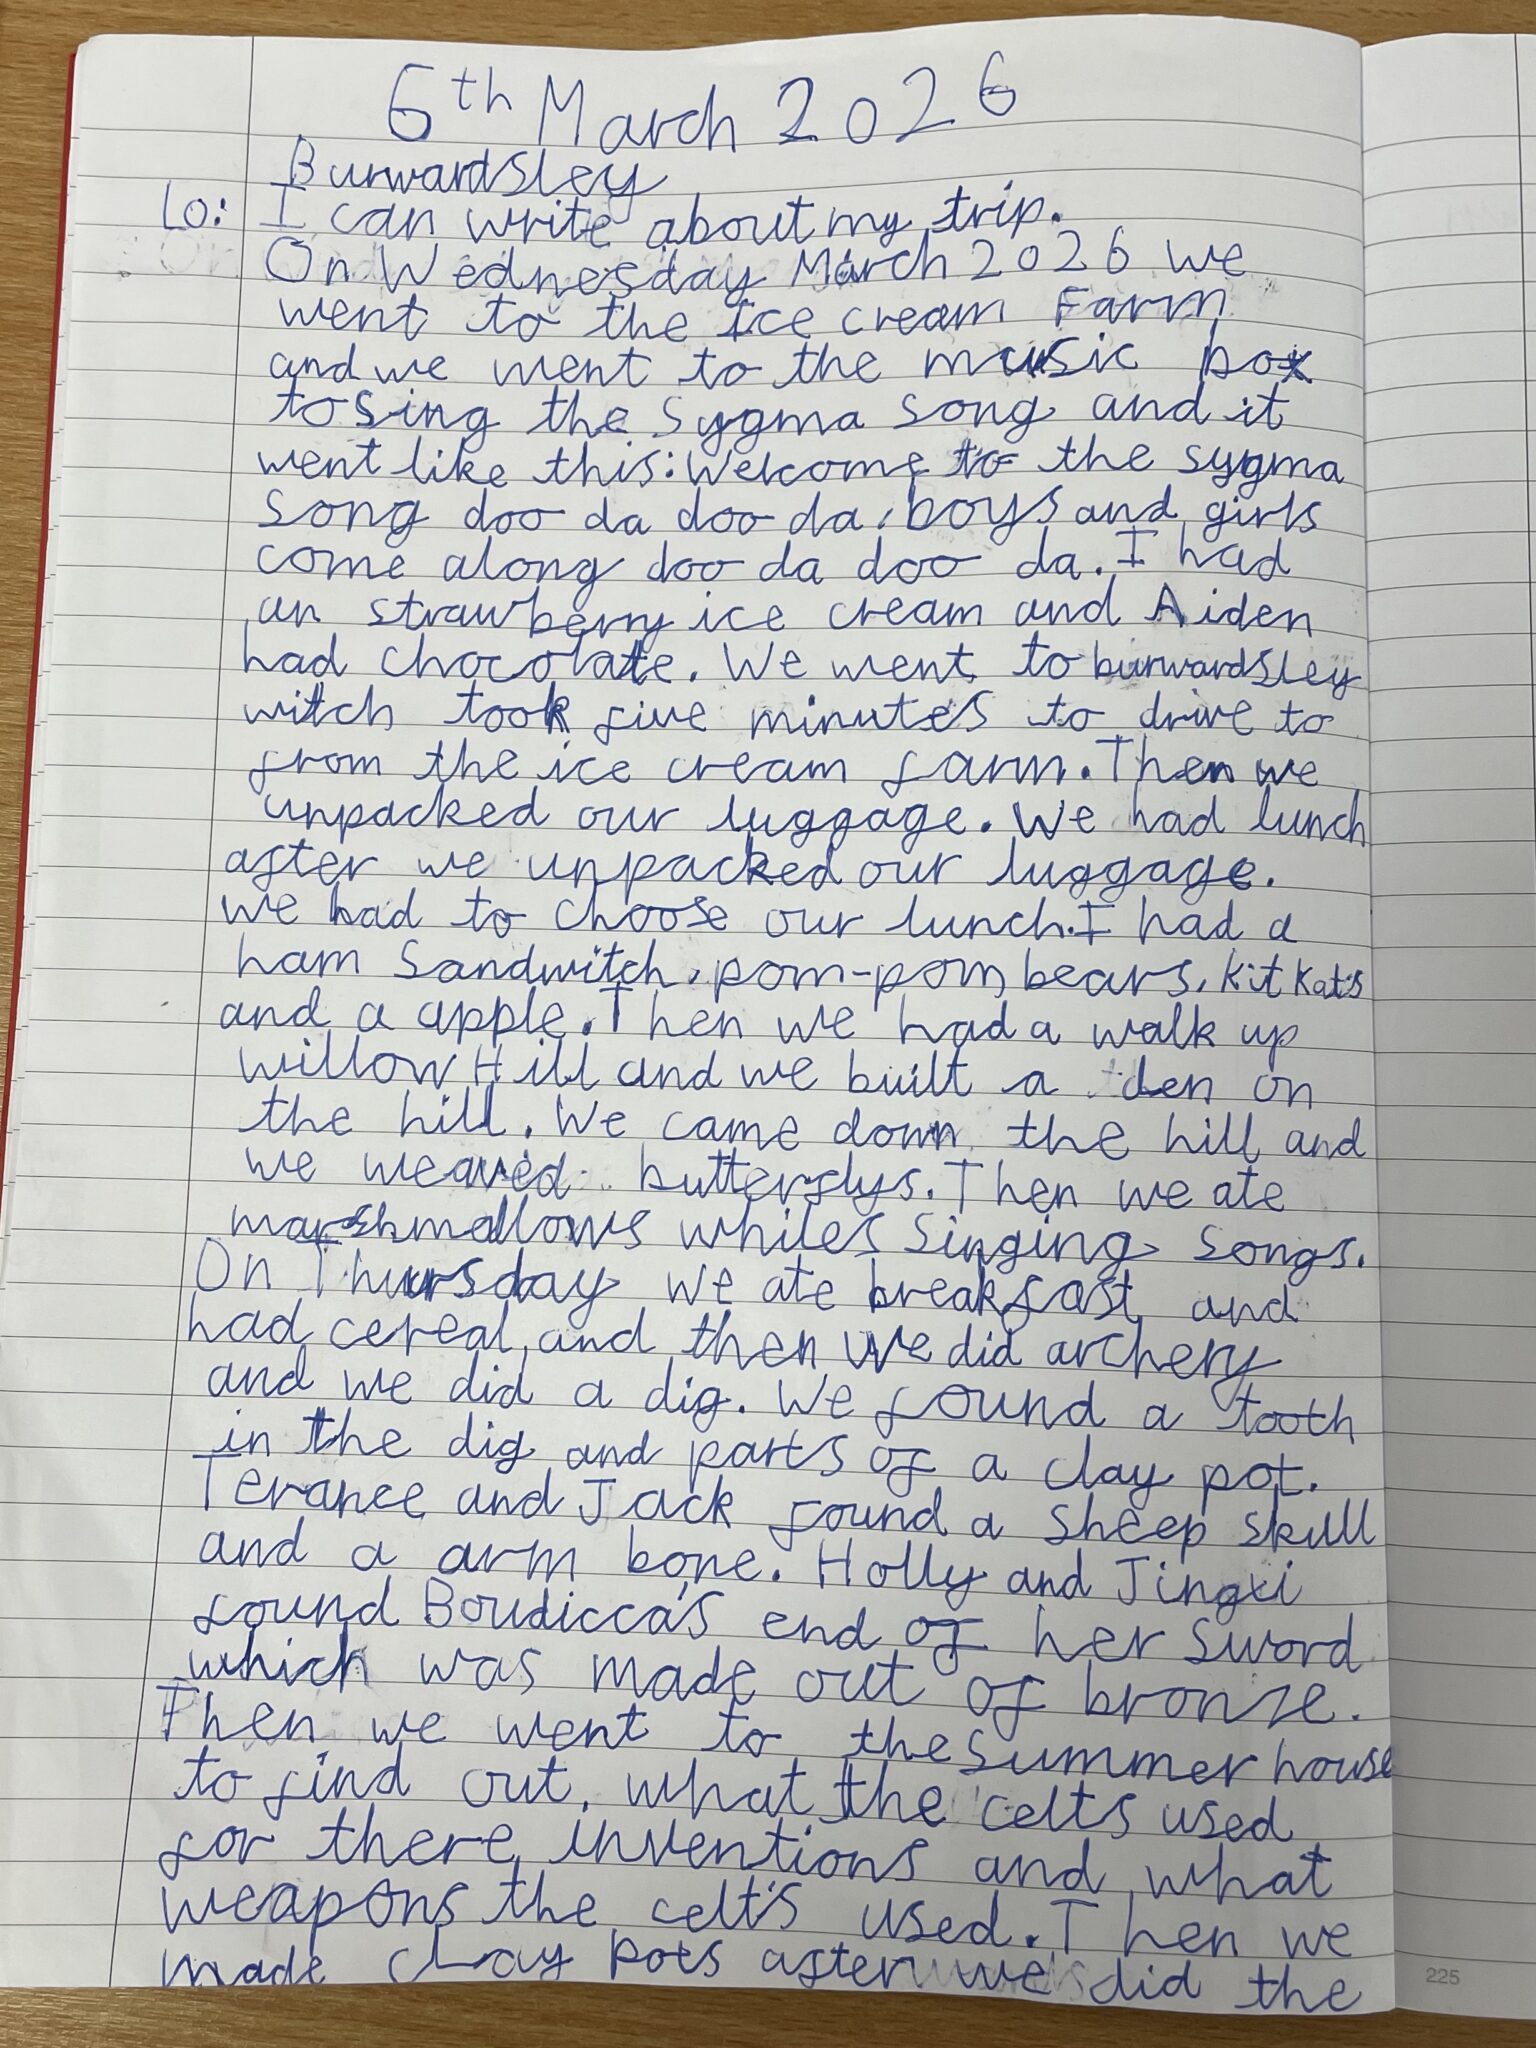 6th March 2026
Burwardsley
Lo: I can write about my trip.
On Wednesday March 2026 we
went to the Ice cream Farm
and we went to the music box
to sing the Sygma song and it
went like this: Welcome to the sygma
song doo da doo da, boys and girls
come along doo da doo da. I had
an strawberry ice cream and Aiden
had chocolate. We went to burwardsley
witch took five minutes to drive to
from the ice cream farm. Then we
unpacked our luggage. We had lunch
after we unpacked our luggage.
we had to choose our lunch. I had a
ham Sandwitch, pom-pom bears, kit kat's
and a apple. Then we had a walk up
willow Hill and we built a den on
the hill. We came down the hill and
we weaved butterflys. Then we ate
marshmallows whiles singing songs.
On Thursday we ate breakfast and
had cereal, and then we did archery
and we did a dig. We found a tooth
in the dig and parts of a clay pot.
Terance and Jack found a sheep skull
and a arm bone. Holly and Jingxi
found Boudicca's end of her sword
which was made out of bronze.
Then we went to the summer house
to find out, what the celts used
for there inventions and what
weapons the celt's used. Then we
made clay pots after we did the
225